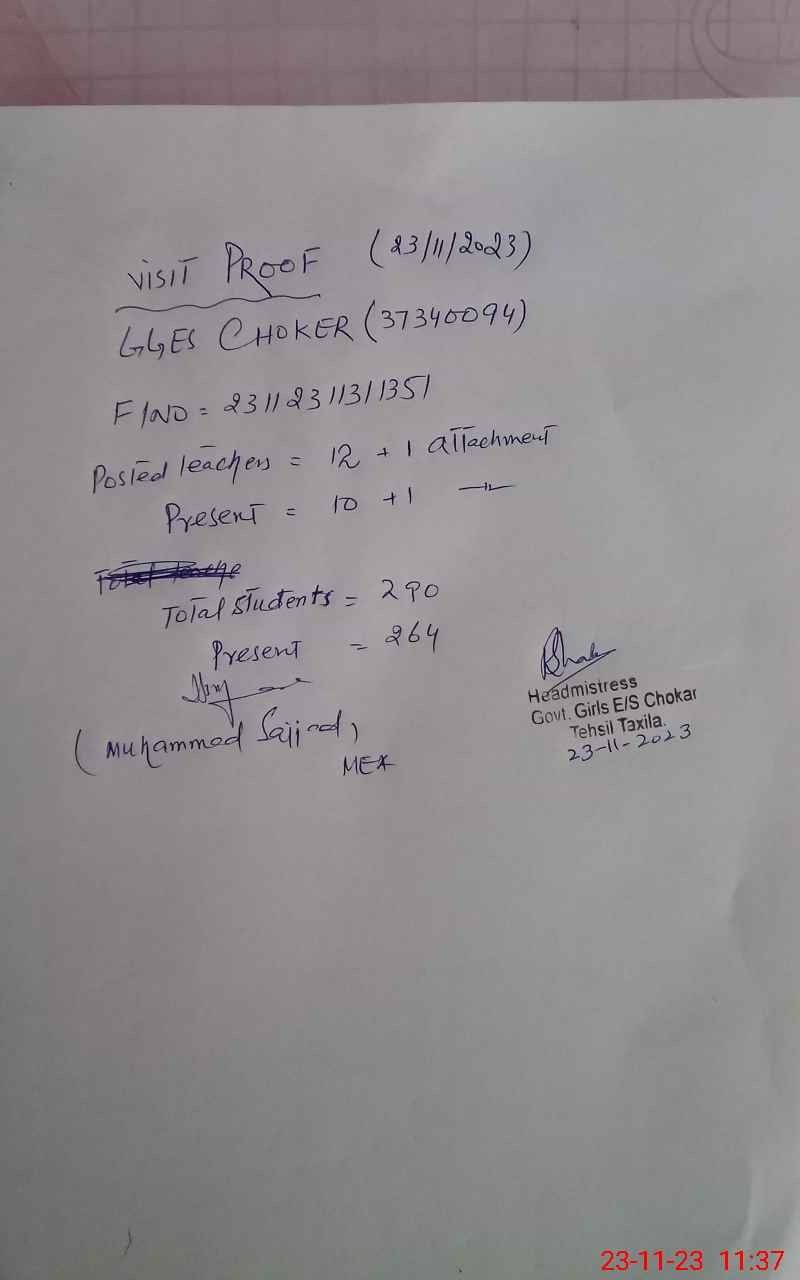 VISIT PROOF (23/11/2023)
GGES CHOKER (37340094)
F/NO = 23112311311351
Posted teachers = 12 + 1 attachment
Present = 10 + 1 —〃—
Total teache
Total students = 290
Present = 264
(Muhammad Sajjad)
MEA
Headmistress
Govt. Girls E/S Chokar
Tehsil Taxila.
23-11-2023
23-11-23 11:37